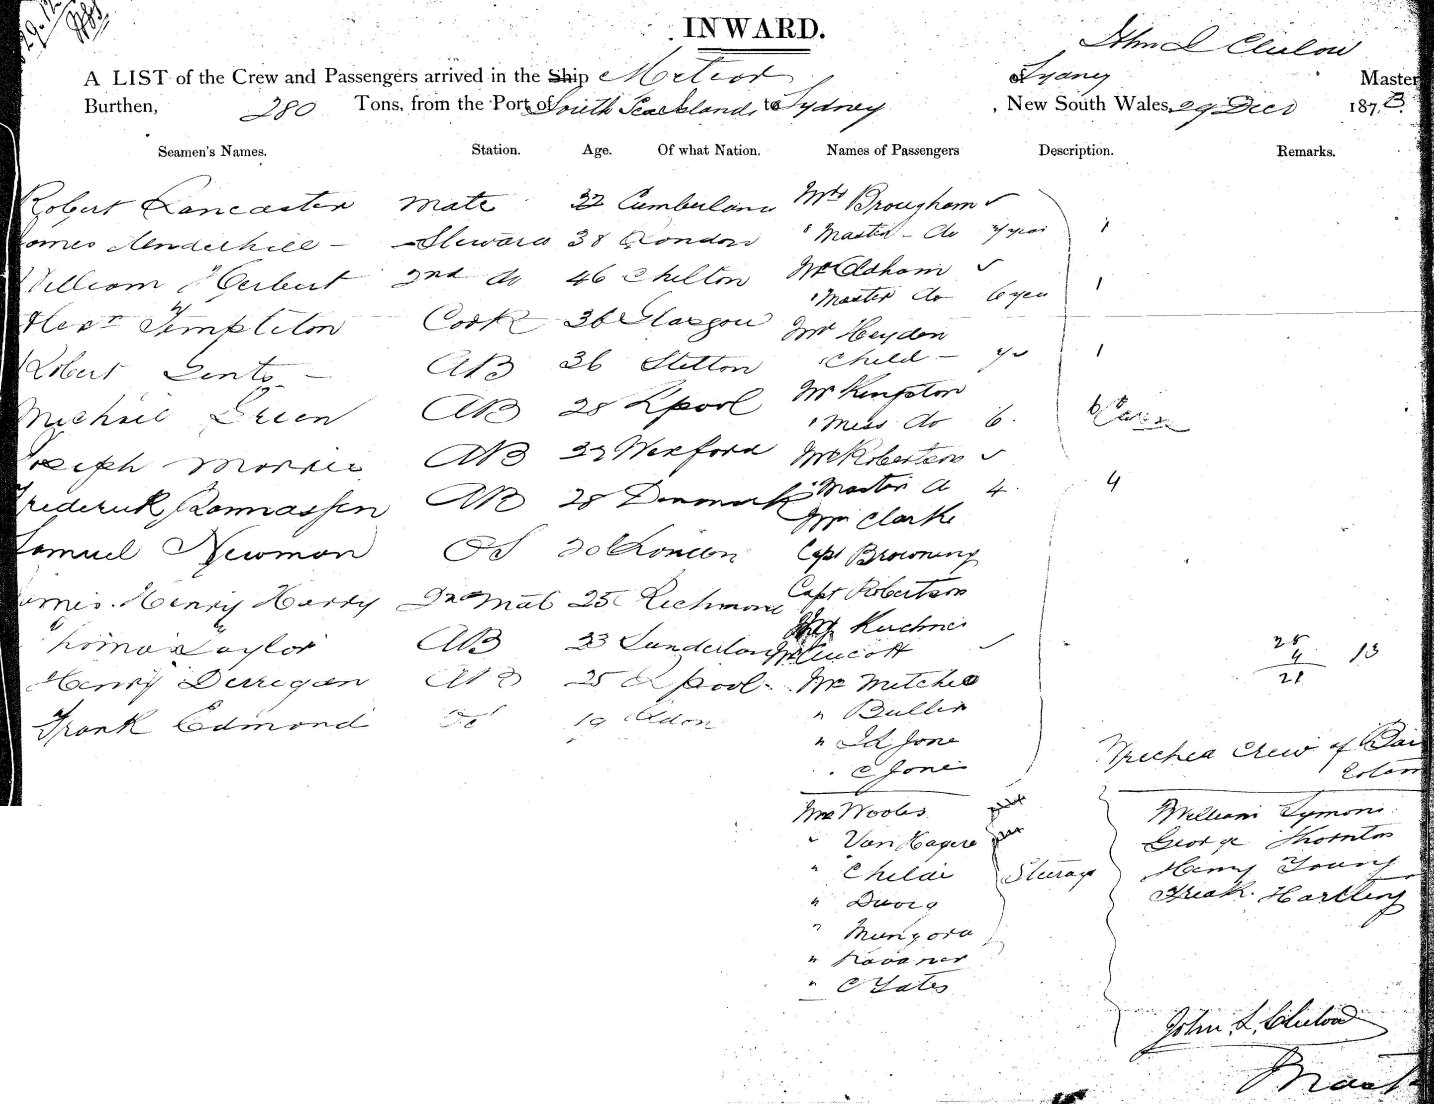 29.12
INWARD.
John L Clulow
A LIST of the Crew and Passengers arrived in the Ship Meteor of Sydney Master
Burthen, 280 Tons, from the Port of South Sea Islands to Sydney , New South Wales, 29 Decr 1873
Seamen's Names. Station. Age. Of what Nation. Names of Passengers Description. Remarks.
Robert Lancaster Mate 32 Cumberland Mrs Brougham
James Underhill - Steward 38 London " Master - do 1
William Herbert 2nd do 46 Chelton Mrs Oldham
" Master do 6 yea 1
Alexr Templeton Cook 36 Glasgow Mr Heydon
Robert AB 36 Stetton " Child - 1
Michael Green AB 28 Lpool Mr Kingston
" Miss do 6.
Joseph Morris AB Wexford Mrs Robertson
" Master do 4 4
Frederick AB 28 Denmark Mr Clarke
Samuel Newman OS 20 London Capt Browning
James Henry Herry 2nd Mate 25 Richmond Capt Robertson
Thomas Taylor AB 23 Sunderland
Henry Derregan AB 25 Lpool Mr
" Buller
Frank Edmond OS 19 Ldon
" Jd Jone
" C Jones
25
4
21
13
Wrecked Crew of
Mrs Woods
" Van Hagere
" Childe
"
" Mungora
"
" C Yates
Steerage
William Symons
George Thornton
Henry Young
Fredk. Hartley
John. L. Clulow
Mast